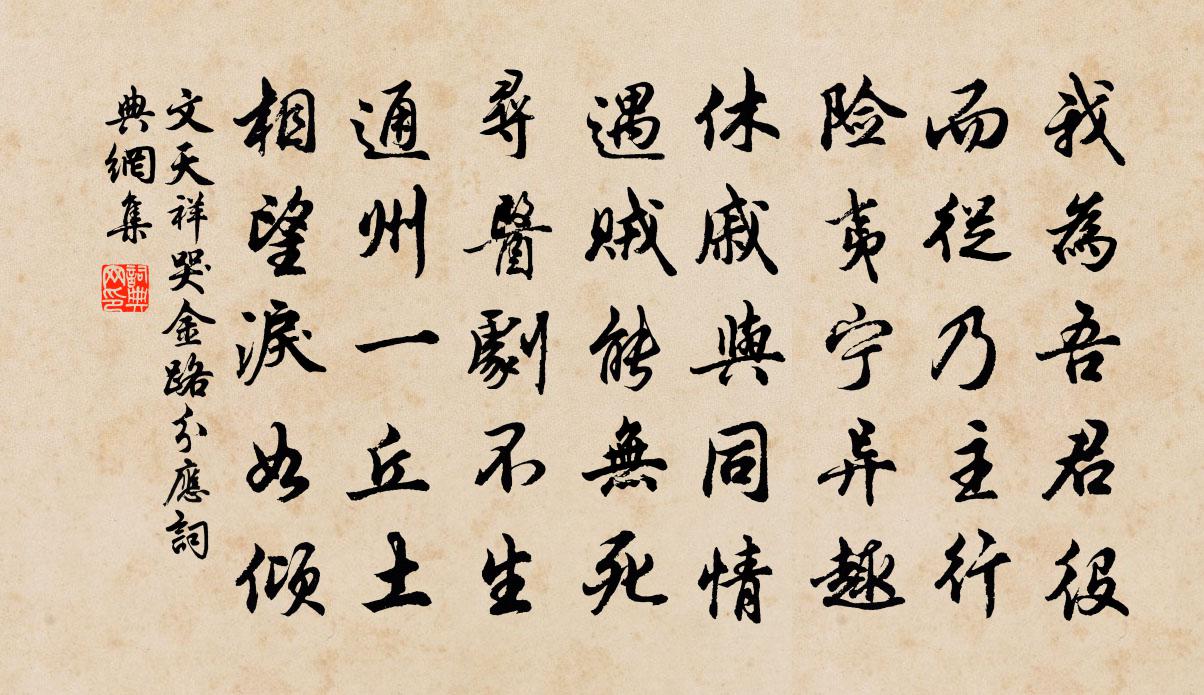 我為吾君役
而從乃主行
险夷宁异趣
休戚與同情
遇賊能無死
尋醫劇不生
通州一丘土
相望淚如倾
文天祥哭金路分應詞
典網集
詞典
网印